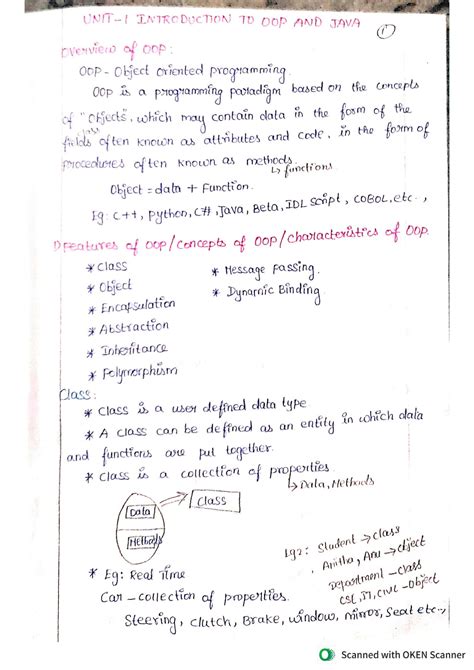 UNIT-1 INTRODUCTION TO OOP AND JAVA
1
Overview of OOP:
OOP - Object oriented programming.
OOP is a programming paradigm based on the concepts
of "Objects", which may contain data in the form of the
class
fields often known as attributes and code, in the form of
procedures often known as methods.
↳ functions.
Object = data + Function.
Eg: C++, Python, C#, Java, Beta, IDL Script, COBOL, etc.,
Features of OOP/Concepts of OOP/Characteristics of OOP.
* Class
* Message Passing.
* Object
* Dynamic Binding
* Encapsulation
* Abstraction
* Inheritance
* Polymorphism
Class:
* Class is a user defined data type
* A class can be defined as an entity in which data
and functions are put together.
* Class is a collection of properties.
↳ Data, Methods
Data
Class
Methods
Eg2: Student → class
Anitha, Anu → object
Department - class
CSE, IT, CIVIL - Object
* Eg: Real Time
Car - collection of properties.
Steering, clutch, Brake, window, mirror, Seat etc.,
Scanned with OKEN Scanner